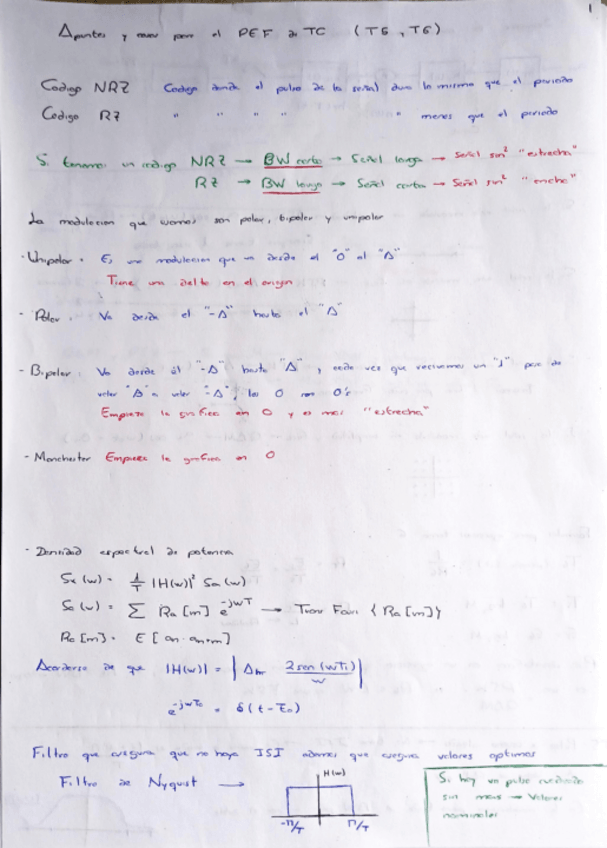 1
Apuntes y para el PEF de TC (T5, T6)
Codigo NRZ Codigo donde el pulso de la señal dura lo mismo que el periodo
Codigo RZ " " " " " menos que el periodo
Si tenemos un codigo NRZ → BW corto → Señal larga → Señal sin² "estrecha"
RZ → BW largo → Señal corta → Señal sin² "ancha"
La modulacion que usamos son polar, bipolar y unipolar
- Unipolar: Es una modulacion que va desde el "0" al "A"
Tiene una delta en el origin
- Polar: Va desde el "-A" hasta el "A"
- Bipolar: Va desde el "-A" hasta "A", cada vez que recivimos un "1" pasa de
valer "A" a valer "-A", los 0 son 0's
Empieza la grafica en 0 y es mas "estrecha"
- Manchester Empieza la grafica en 0
- Densidad espectral de potencia
Sx(w) = 1/T |H(w)|² Sa(w)
Sa(w) = Σ Ra[m] e^-jwT → Trans Fouri {Ra[m]}
Ra[m] = E[an · an+m]
Acordarse de que |H(w)| = | 2sen(wT1)/w |
e^-jwto = δ(t-to)
Filtro que asegura que no haya ISI ademas que asegura valores optimos
Filtro de Nyquist →
H(w)
-π/T π/T
Si hay un pulso cuadrado
sin mas → Valores
nominales